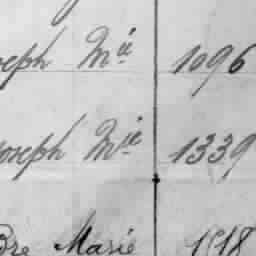 oseph Mie 1096
oseph Mie 1339
Marie 1518